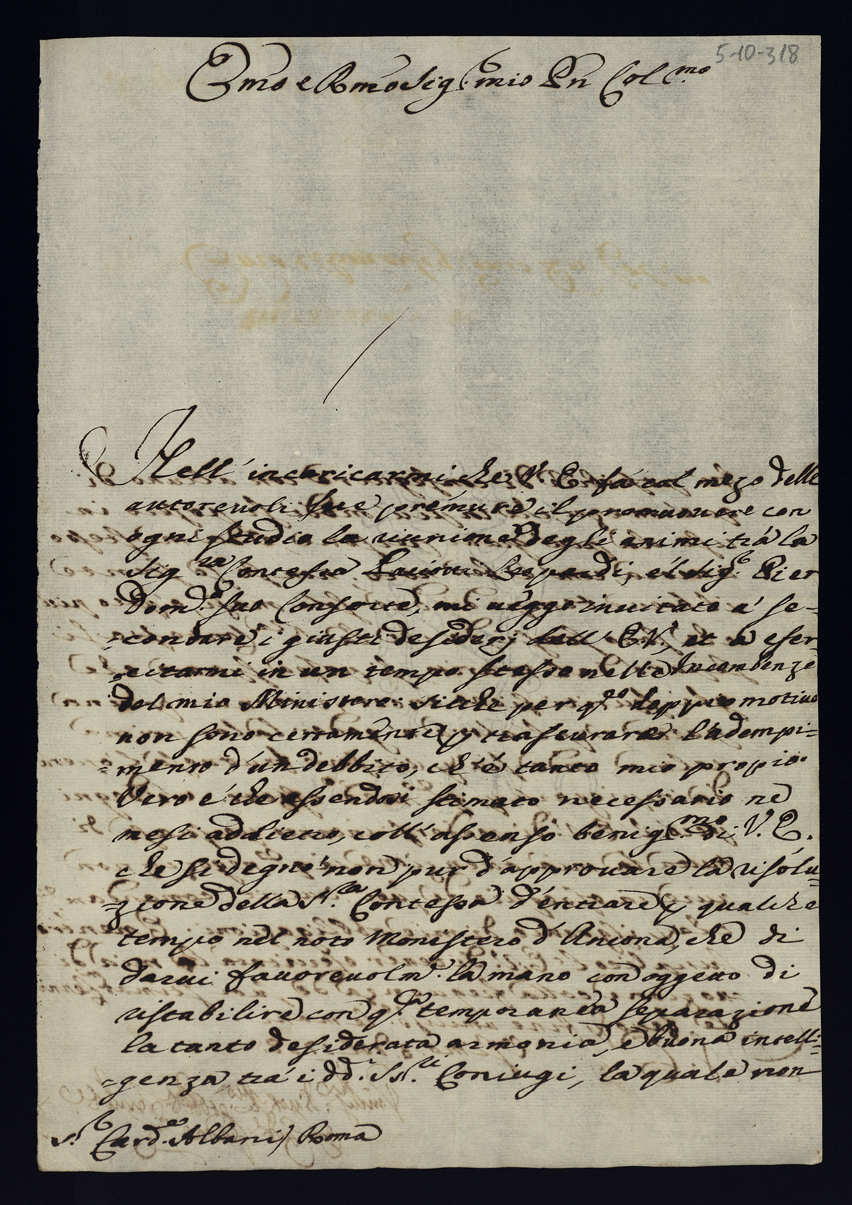 5-10-318
Emo e Rmo Sig.r mio Pn Col.mo
Nell' incaricarmi che V. E. fà col mezo delle
autorevoli sue premure il promuovere con
ogni studio la riunione degli animi trà la
Sig.ra Contessa Leopardi, e 'l Sig.r Pier
Dom.o suo Consorte, mi veggo invitato a' se-
=condare i giusti desiderj dell' E. V., et a eser-
=citarmi in un tempo stesso nelle Incombenze
del mio Ministero: Sicche per q.to doppio motivo
non sono certamente p trascurare l'adempi-
=mento d'un debbito, ch'è tanto mio proprio.
Vero è che essendosi stimato necessario ne
mesi addietro, coll' assenso benig.mo di V. E.
che si degnò non pur d'approvare la risolu-
=zione della S.ra Contessa d'entrare p qualche
tempo nel noto Monistero d'Ancona, che di
darvi favorevolm.e la mano con oggetto di
ristabilire con q.ta temporanea separazione
la tanto desiderata armonia, e buona intelli-
=genza trà i dd.i SS.ri Coniugi, la quale non
S.r Card.e Albani / Roma